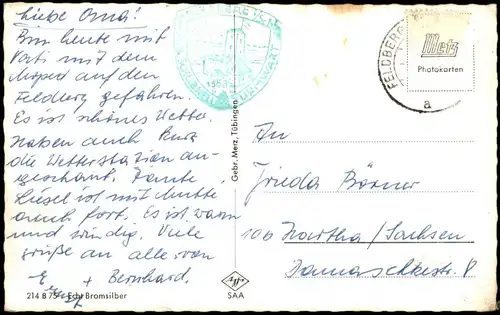 Liebe Oma!
Bin heute mit
Vati mit dem
Moped auf den
Feldberg gefahren.
Es ist schönes Wetter.
Haben auch kurz
die Wetterstation an-
geschaut. Tante
Liesel ist mit Mutti
auch fort. Es ist warm
und windig. Viele
Grüße an alle von
E. + Bernhard.
214 B 75 Echt Bromsilber
FELDBERG
Gebr. Merz, Tübingen
Agfa
SAA
FELDBERG
a
Metz
Photokarten
An
Frieda Börner
106 Hartha/Sachsen
8